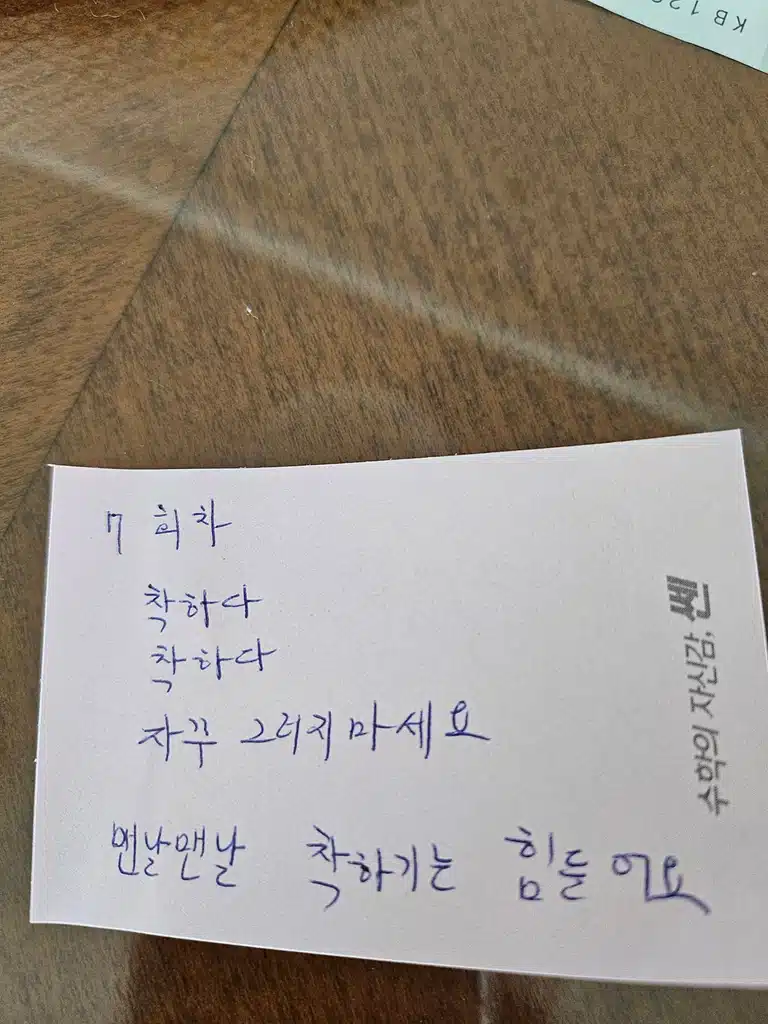 KB 12
7 회차
착하다
착하다
자꾸 그러지마세요
맨날맨날 착하기는 힘들어요
수학의 자신감, 쎈